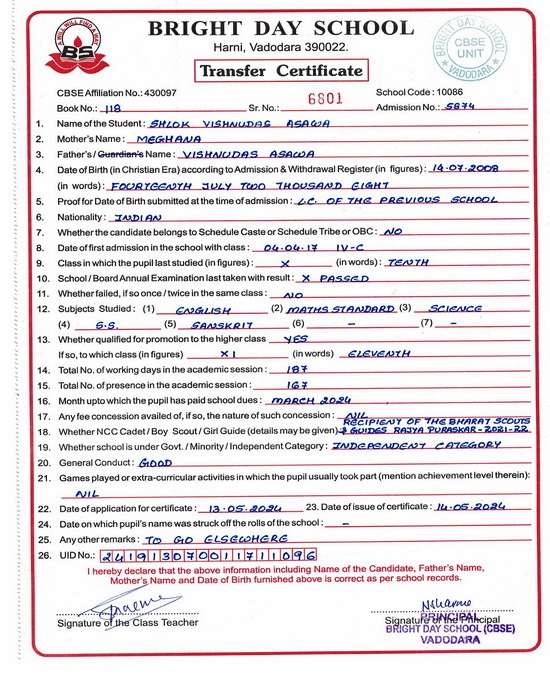 A WILL WILL FIND A WAY
BS
BRIGHT DAY SCHOOL
Harni, Vadodara 390022.
BRIGHT DAY SCHOOL
CBSE
UNIT
VADODARA
Transfer Certificate
CBSE Affiliation No.: 430097
School Code : 10086
Book No.: 118 Sr. No.: 6801 Admission No.: 5874
1. Name of the Student : SHLOK VISHNUDAS ASAWA
2. Mother's Name : MEGHANA
3. Father's / Guardian's Name : VISHNUDAS ASAWA
4. Date of Birth (in Christian Era) according to Admission & Withdrawal Register (in figures) : 14.07.2008
(in words) : FOURTEENTH JULY TWO THOUSAND EIGHT
5. Proof for Date of Birth submitted at the time of admission : L.C. OF THE PREVIOUS SCHOOL
6. Nationality : INDIAN
7. Whether the candidate belongs to Schedule Caste or Schedule Tribe or OBC : NO
8. Date of first admission in the school with class : 04.04.17 IV-C
9. Class in which the pupil last studied (in figures) : X (in words) : TENTH
10. School / Board Annual Examination last taken with result : X PASSED
11. Whether failed, if so once / twice in the same class : NO
12. Subjects Studied : (1) ENGLISH (2) MATHS STANDARD (3) SCIENCE
(4) S.S. (5) SANSKRIT (6) – (7) –
13. Whether qualified for promotion to the higher class YES
If so, to which class (in figures) XI (in words) ELEVENTH
14. Total No. of working days in the academic session : 187
15. Total No. of presence in the academic session : 167
16. Month upto which the pupil has paid school dues : MARCH 2024
17. Any fee concession availed of, if so, the nature of such concession : NIL
RECIPIENT OF THE BHARAT SCOUTS
18. Whether NCC Cadet / Boy Scout / Girl Guide (details may be given) & GUIDES RAJYA PURASKAR-2021-22
19. Whether school is under Govt. / Minority / Independent Category : INDEPENDENT CATEGORY
20. General Conduct : GOOD
21. Games played or extra-curricular activities in which the pupil usually took part (mention achievement level therein):
NIL
22. Date of application for certificate : 13.05.2024 23. Date of issue of certificate : 14.05.2024
24. Date on which pupil's name was struck off the rolls of the school : –
25. Any other remarks : TO GO ELSEWHERE
26. UID No.: 241913070011711096
I hereby declare that the above information including Name of the Candidate, Father's Name,
Mother's Name and Date of Birth furnished above is correct as per school records.
Signature of the Class Teacher
Signature of the Principal
PRINCIPAL
BRIGHT DAY SCHOOL (CBSE)
VADODARA